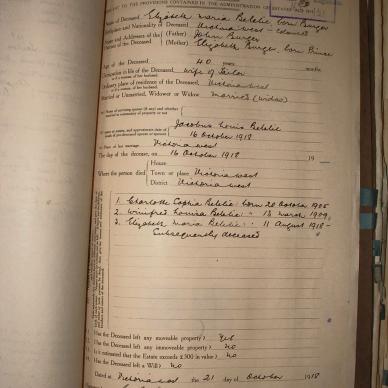 TO THE PROVISIONS CONTAINED IN THE ADMINISTRATION OF ESTATES ACT
Name of Deceased, Elizabeth Maria Belelie, born Burger
Birthplace and Nationality of Deceased Victoria West - coloured
Names and Addresses of the (Father) John Burger
Parents of the Deceased (Mother) Elizabeth Burger, born Prince
Age of the Deceased 40 years months
Occupation in life of the Deceased wife of Tailor
Ordinary place of residence of the Deceased, Victoria West
Married or Unmarried, Widower or Widow married (widow)
(a) Name of surviving spouse (if any) and whether
married in community of property or not
Jacobus Louis Belelie
16 October 1918
(c) Place of last marriage
Victoria West
The day of the decease, on 16 October 1918 19
House
Where the person died Town or place Victoria West
District Victoria West
1. Charlotte Sophia Belelie: born 20 October 1905
2. Winnifred Louisa Belelie: " 13 March 1909
3. Elizabeth Maria Belelie: " 11 August 1918 -
Subsequently deceased
Has the Deceased left any moveable property? Yes
Has the Deceased left any immoveable property? no
Is it estimated that the Estate exceeds £300 in value? no
Has the Deceased left a Will? no
Dated at Victoria West the 21 day of October 1918